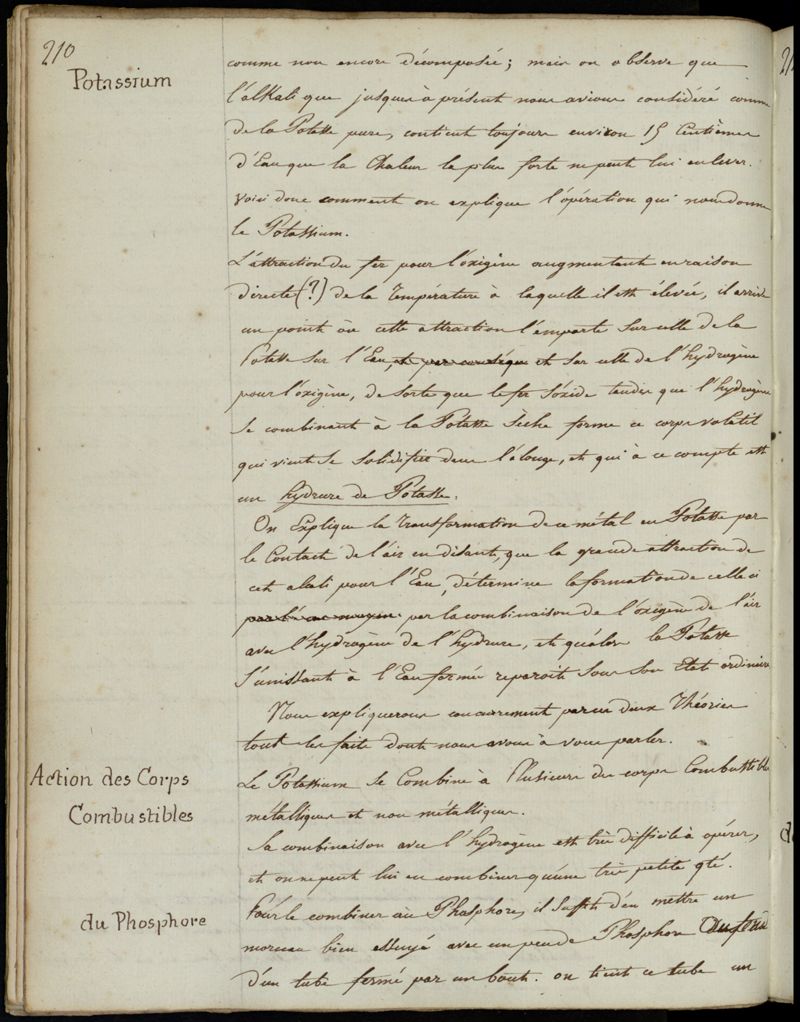 210
Potassium
comme non encore décomposée; mais on observe que
l'alkali que jusques à présent nous avions considéré comme
de la Potasse pure, contient toujours environ 15 Centièmes
d'Eau que la Chaleur la plus forte ne peut lui enlever.
Voici donc comment on explique l'opération qui nous donne
le Potassium.
L'attraction du fer pour l'oxigène augmentant en raison
directe (?) de la Température à laquelle il est élevée, il arrive
un point où cette attraction l'emporte sur celle de la
Potasse sur l'Eau, et par conséque et sur celle de l'hydrogène
pour l'oxigène, de sorte que le fer s'oxide tandis que l'hydrogène
se combinant à la Potasse Sèche forme ce corps volatil
qui vient se solidifier dans l'alonge, et qui à ce compte est
un hydrure de Potasse.
On Explique la transformation de ce métal en Potasse par
le Contact de l'air en disant, que la grande attraction de
cet alcali pour l'Eau, détermine la formation de celle ci
par la combinaison de l'oxigène de l'air
avec l'hydrogène de l'hydrure, et qu'alors la Potasse
s'unissant à l'Eau formée reparoit sous son Etat ordinaire
Nous expliquerons concurrement par ces deux Théories
tous les faits dont nous avons à vous parler.
Action des Corps
Combustibles
Le Potassium se Combine à Plusieurs des corps Combustibles
métalliques et non métalliques.
Sa combinaison avec l'hydrogène est très difficile à opérer,
et on ne peut lui en combiner qu'une très petite qté.
du Phosphore
Pour le combiner au Phosphore, il suffit d'en mettre un
morceau bien essuyé avec un peu de Phosphore au fond
d'un tube fermé par un bout. on tient ce tube un